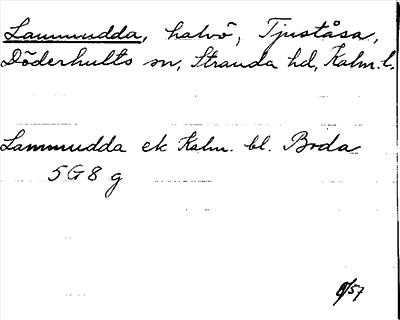 Lammudda, halvö, Tjuståsa,
Döderhults sn, Stranda hd, Kalm. l.
Lammudda ek Kalm. bl. Boda
5G8 g
/57